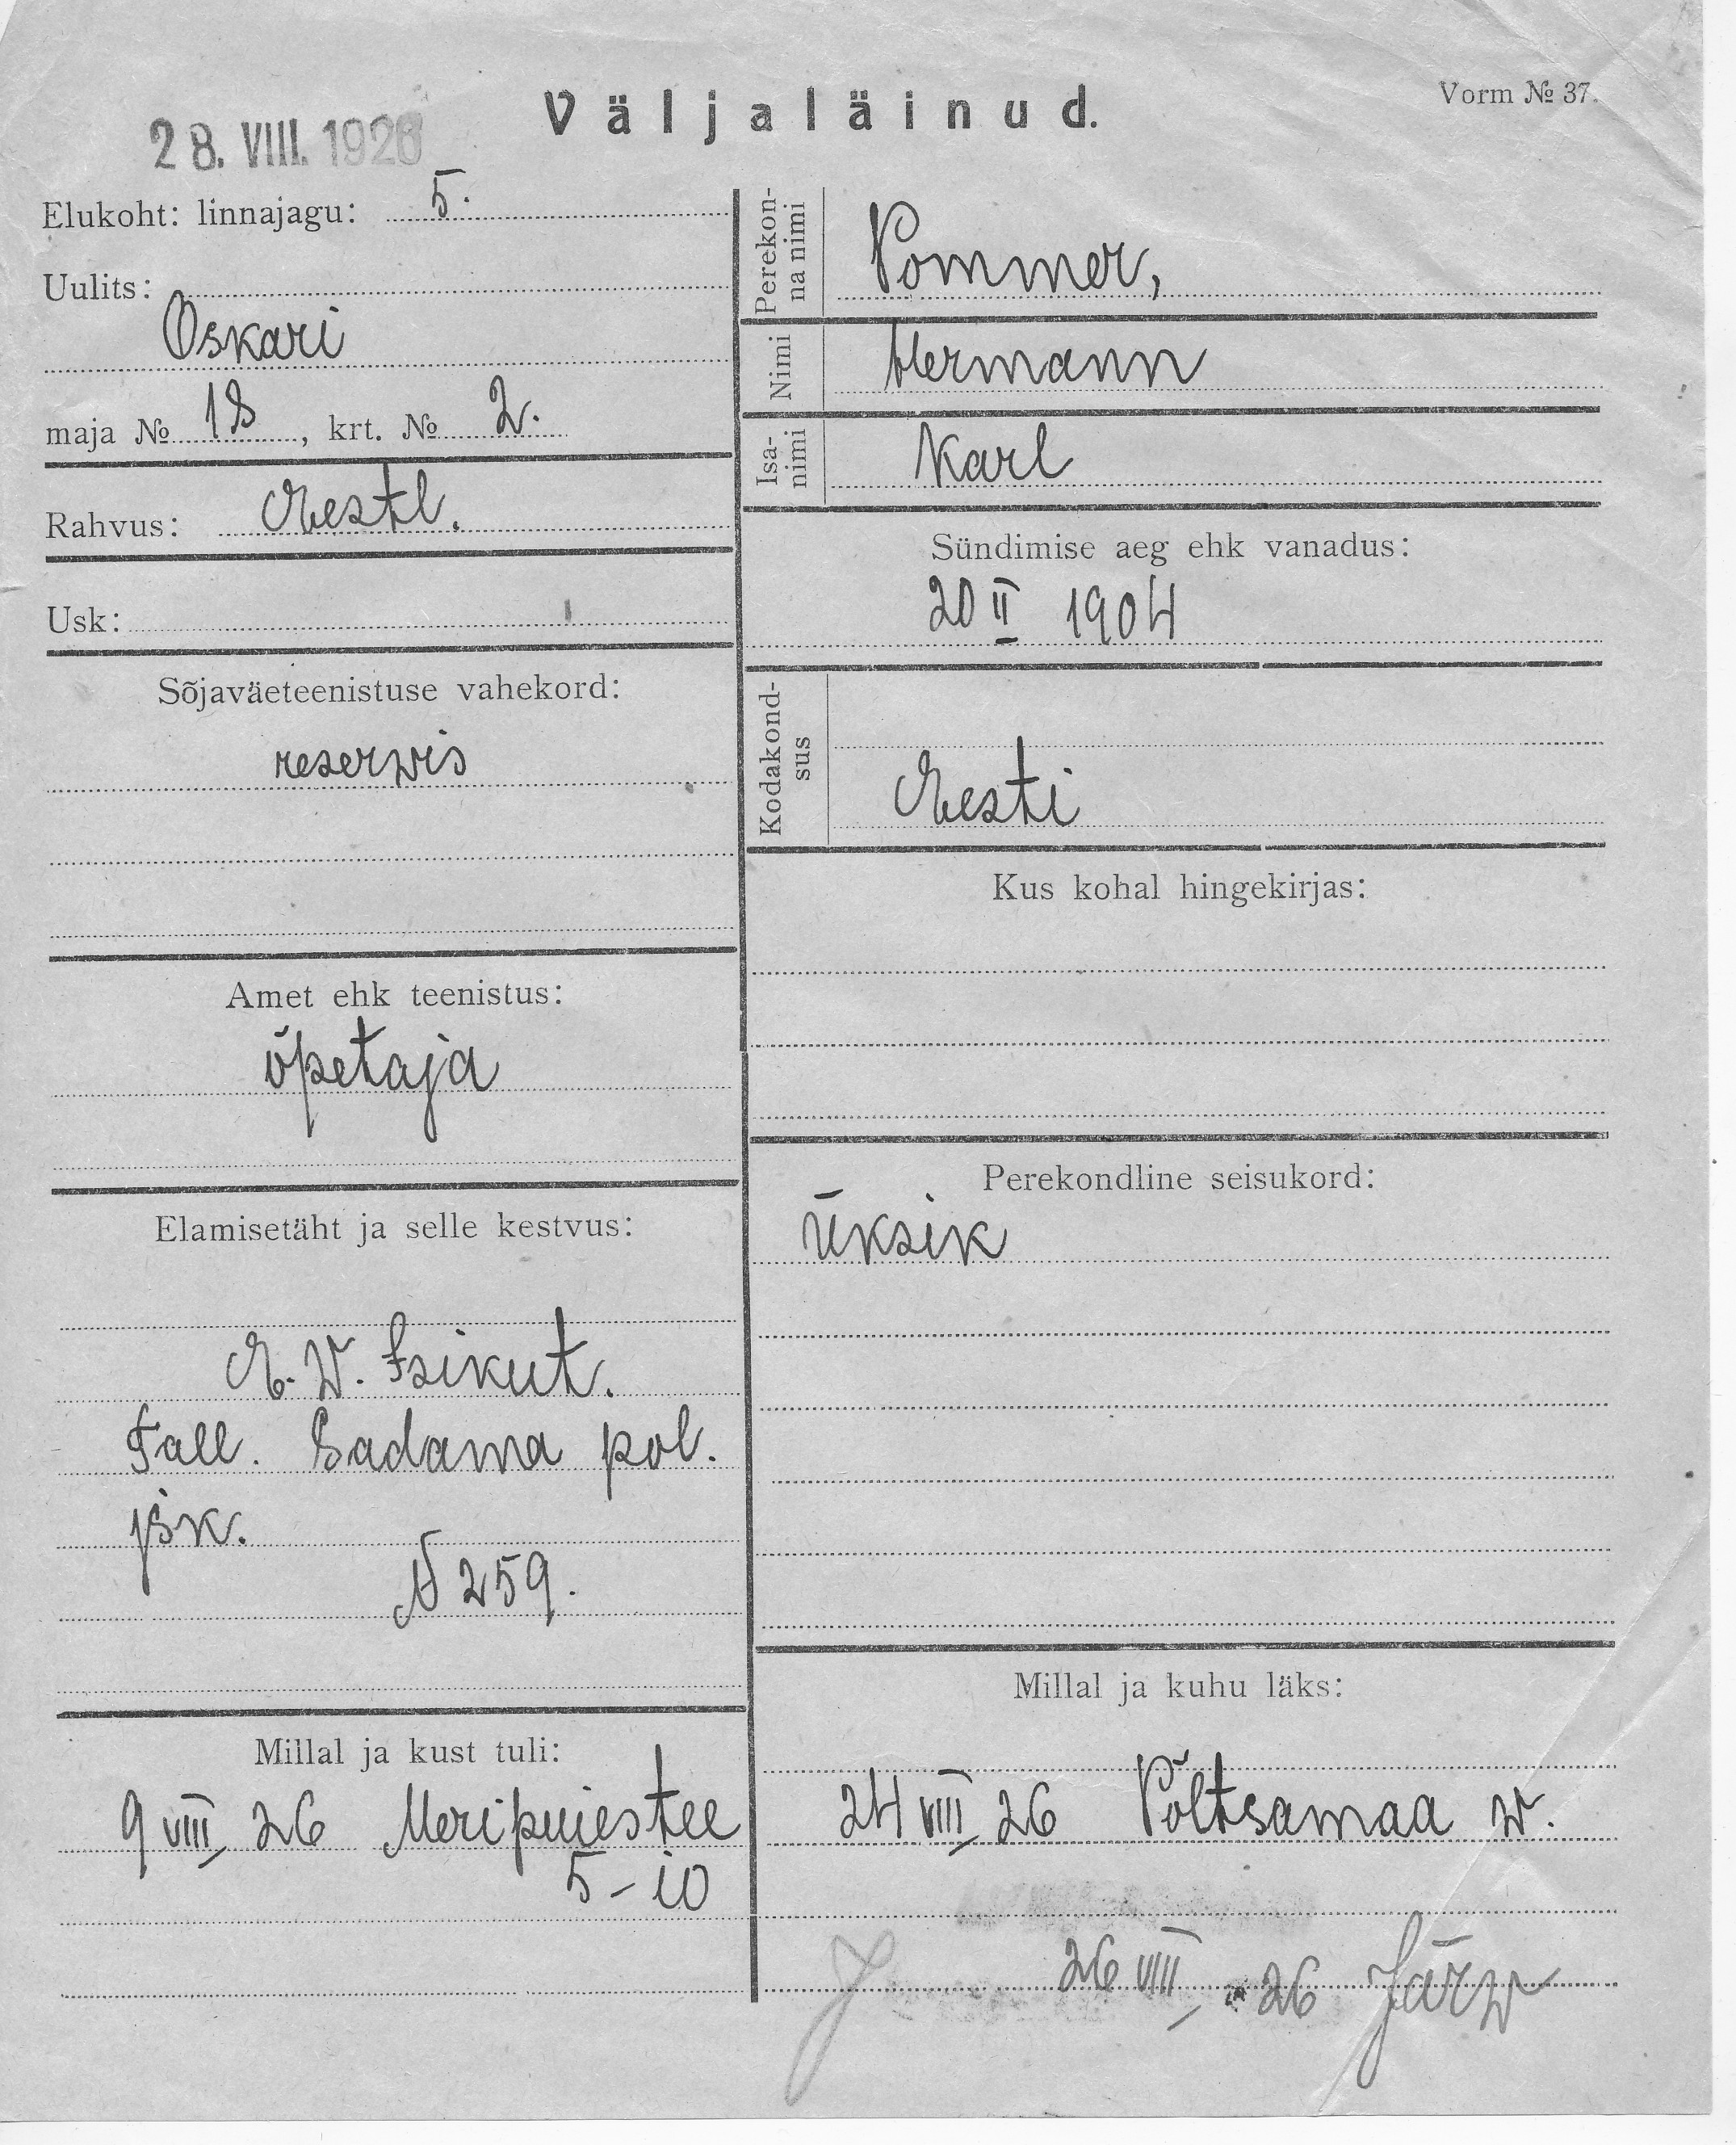 Vorm № 37.
Väljaläinud.
28. VIII. 1926
Elukoht: linnajagu: 5.
Uulits:
Oskari
maja № 18, krt. № 2.
Rahvus: Eestl.
Usk:
Sõjaväeteenistuse vahekord:
reserwis
Amet ehk teenistus:
õpetaja
Elamisetäht ja selle kestvus:
E. W. Isikut.
Tall. Sadama pol.
jsk.
N 259.
Millal ja kust tuli:
9 VIII 26 Meripuiestee
5-10
Perekonna nimi
Pommer,
Nimi
Hermann
Isanimi
Karl
Sündimise aeg ehk vanadus:
20 II 1904
Kodakondsus
Eesti
Kus kohal hingekirjas:
Perekondline seisukord:
Üksik
Millal ja kuhu läks:
24 VIII 26 Põltsamaa w.
26 VIII 26 Järw